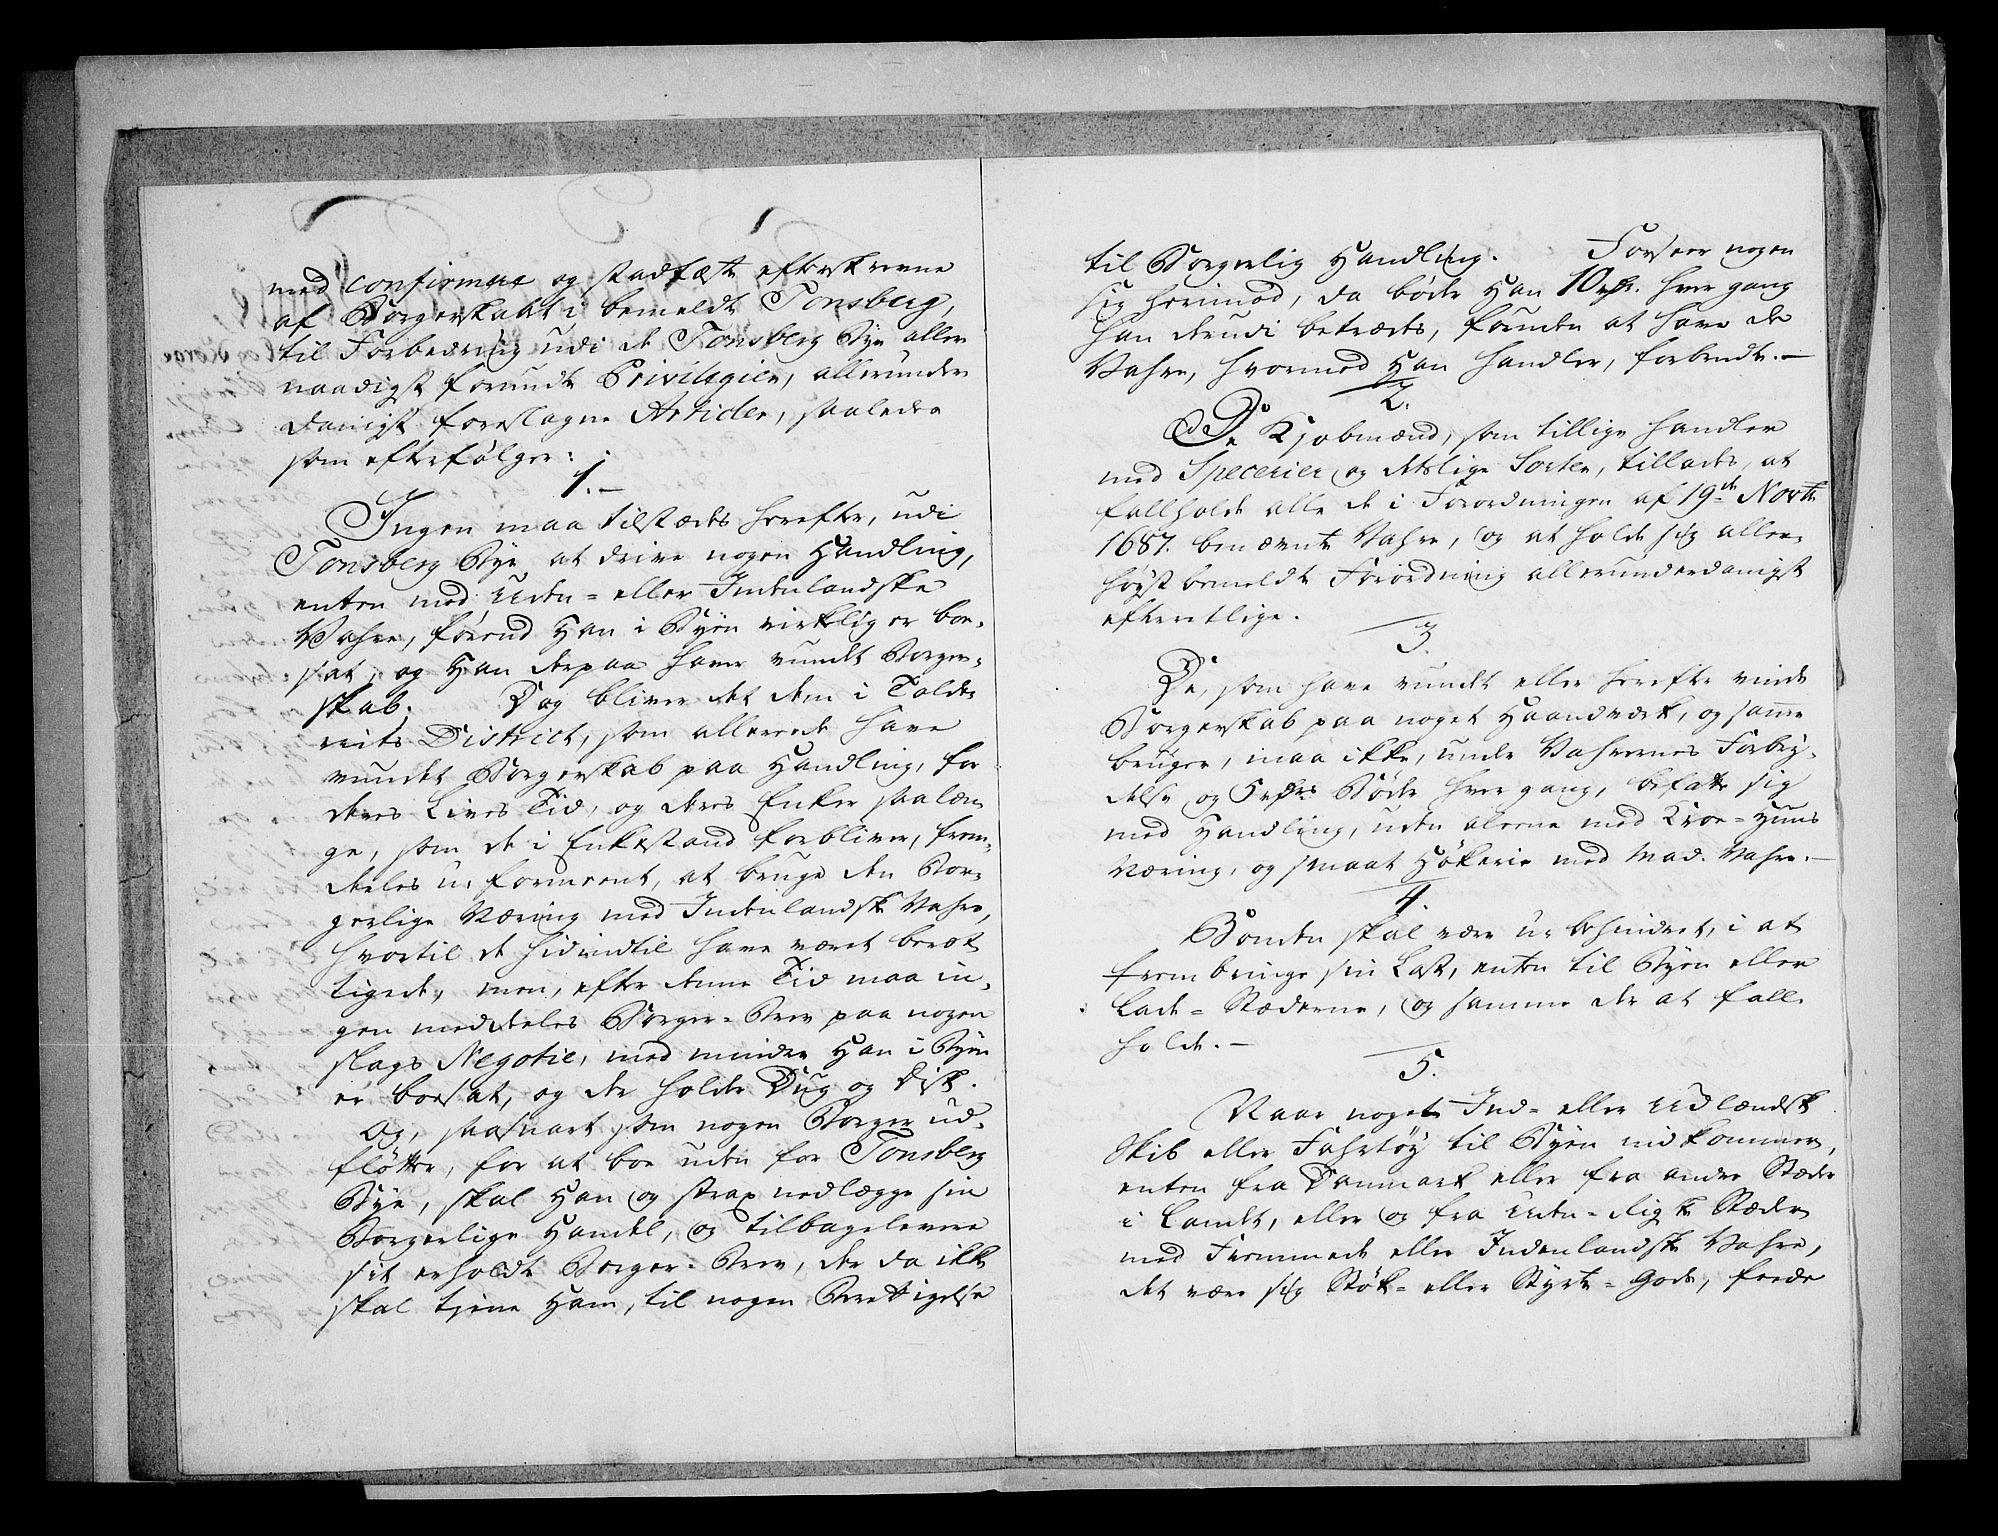 med confirmere og stadfæste efterskrevne
af Borgerskabet i bemeldte Tonsberg,
til Forbedring udi de Tonsberg Bye aller
naadigst forundte Privilegier, allerunder
danigst foreslagne Articler, saaledes
som efterfølger:
1.
Ingen maa tilstædes herefter, udi
Tonsberg Bye at drive nogen Handling,
enten med Uden- eller Indenlandske
Vahre, førend Han i Byen virkelig er boe-
sat, og Han derpaa haver vundet Borger-
skab. Dog bliver det dem i Tolde-
riets District, som allerede have
vundet Borgerskab paa Handling, for
deres Livs Tid, og deres Enker saa læn
ge, som de i Enkestand forbliver, frem-
deles u-formeent, at bruge den Bor-
gerlige Næring med Indenlandske Vahre,
hvortil de hidindtil have været beret
tigede, men, efter denne Tid maa in-
gen meddeles Borger-Brev paa nogen
slags Negotie, med mindre Han i Byen
er boesat, og der holder Dug og Disk.
Og, saasnart som nogen Borger ud-
fløtter, for at boe uden for Tonsberg
Bye, skal Han og strax nedlægge sin
Borgerlige Handel, og tilbagelevere
sit erholdte Borger-Brev, der da ikke
skal tiene Ham, til nogen Berettigelse
til Borgerlig Handling. Forseer nogen
sig herimod, da bøde Han 10 rdr. hver gang
han derudi betrædes, foruden at have de
Vahre, hvormed Han handler, forbrudt.
2.
De Kjøbmænd, som tillige handler
med Specerier og deslige Sorter, tillades, at
fallholde alle de i Forordningen af 19de Novbr
1687. benævnte Vahre, og at holde sig aller-
høystbemeldte Forordning allerunderdanigst
efterretlige.
3.
De, som have vundet eller herefter vinde
Borgerskab paa noget Haandverk, og samme
bruger, maa ikke, under Vahrernes Forbry-
delse og 5 rdrs Bøde hver gang, befatte sig
med Handling, uden alene med Kroe-Huus
Næring, og smaat Høkerie med Mad-Vahre.
4.
Bonden skal være u-behindret, i at
frembringe sin Last, enten til Byen eller
Lade-Stæderne, og samme der at fall-
holde.
5.
Naar noget Ind- eller Udlændsk
Skib eller Fahrtøy til Byen indkommer,
enten fra Danmark eller fra andre Stæder
i Landet, eller og fra Uden-Rigske Stæder
med Fremmede eller Indenlandske Vahre,
det være sig Støk- eller Styrte-Gods, Fæde